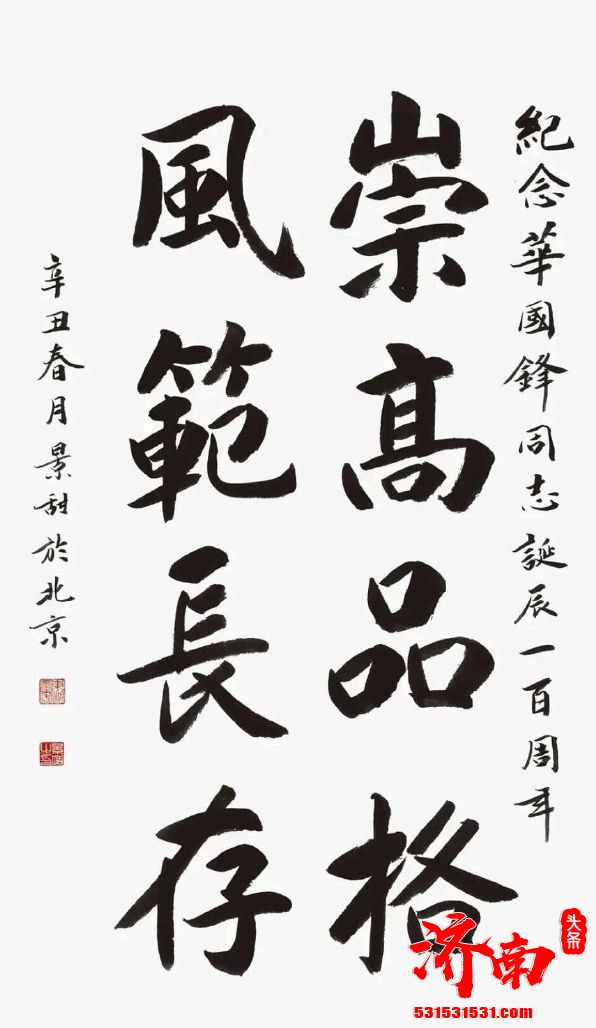 紀念華國鋒同志誕辰一百周年
崇高品格
風範長存
辛丑春月景甜於北京
济南
头条
531531531.com